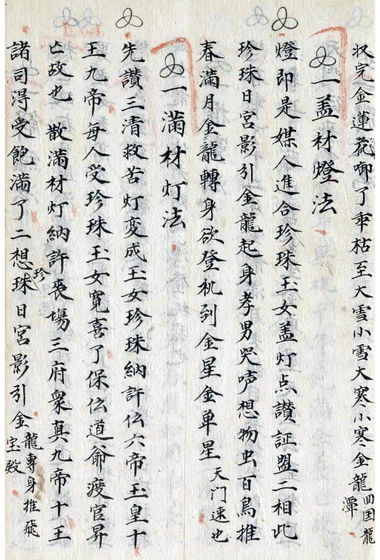 奴完金蓮花哪了乖枯至大雪小雪大寒小寒金龍曲囯龍潭
一盖材燈法
燈即是媒人進合珍珠玉女盖灯点讃証盟二相此
珍珠日宮影引金龍起身孝男哭声想物虫百鳥推
春滿月金龍轉身欲登机到金星金单星天门速也
一滿材灯法
先讃三清救苦灯変成玉女珍珠納許伝六帝王皇十
王九帝每人受珍珠玉女寬喜了保伝道爺疲官昇
亡故也 散滿材灯納許丧塲三府衆真九帝十王
諸司淂受飽滿了二想珍珠日宮影引金龍專身推飛宝殿